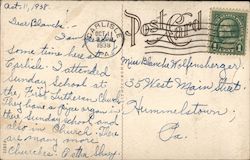 Oct. 11, 1938.
Dear Blanche:
Post Card
CARLISLE
OCT 11
1938
PA.
1
Some time here at
Carlisle I attended
Sunday School at
the First Lutheran Church
They have a pipe organ in
there Sunday school and
also in Church. There
are many more
Churches.
Miss Blanche Wolfensberger,
35 West Main Street,
Hummelstown,
Pa.